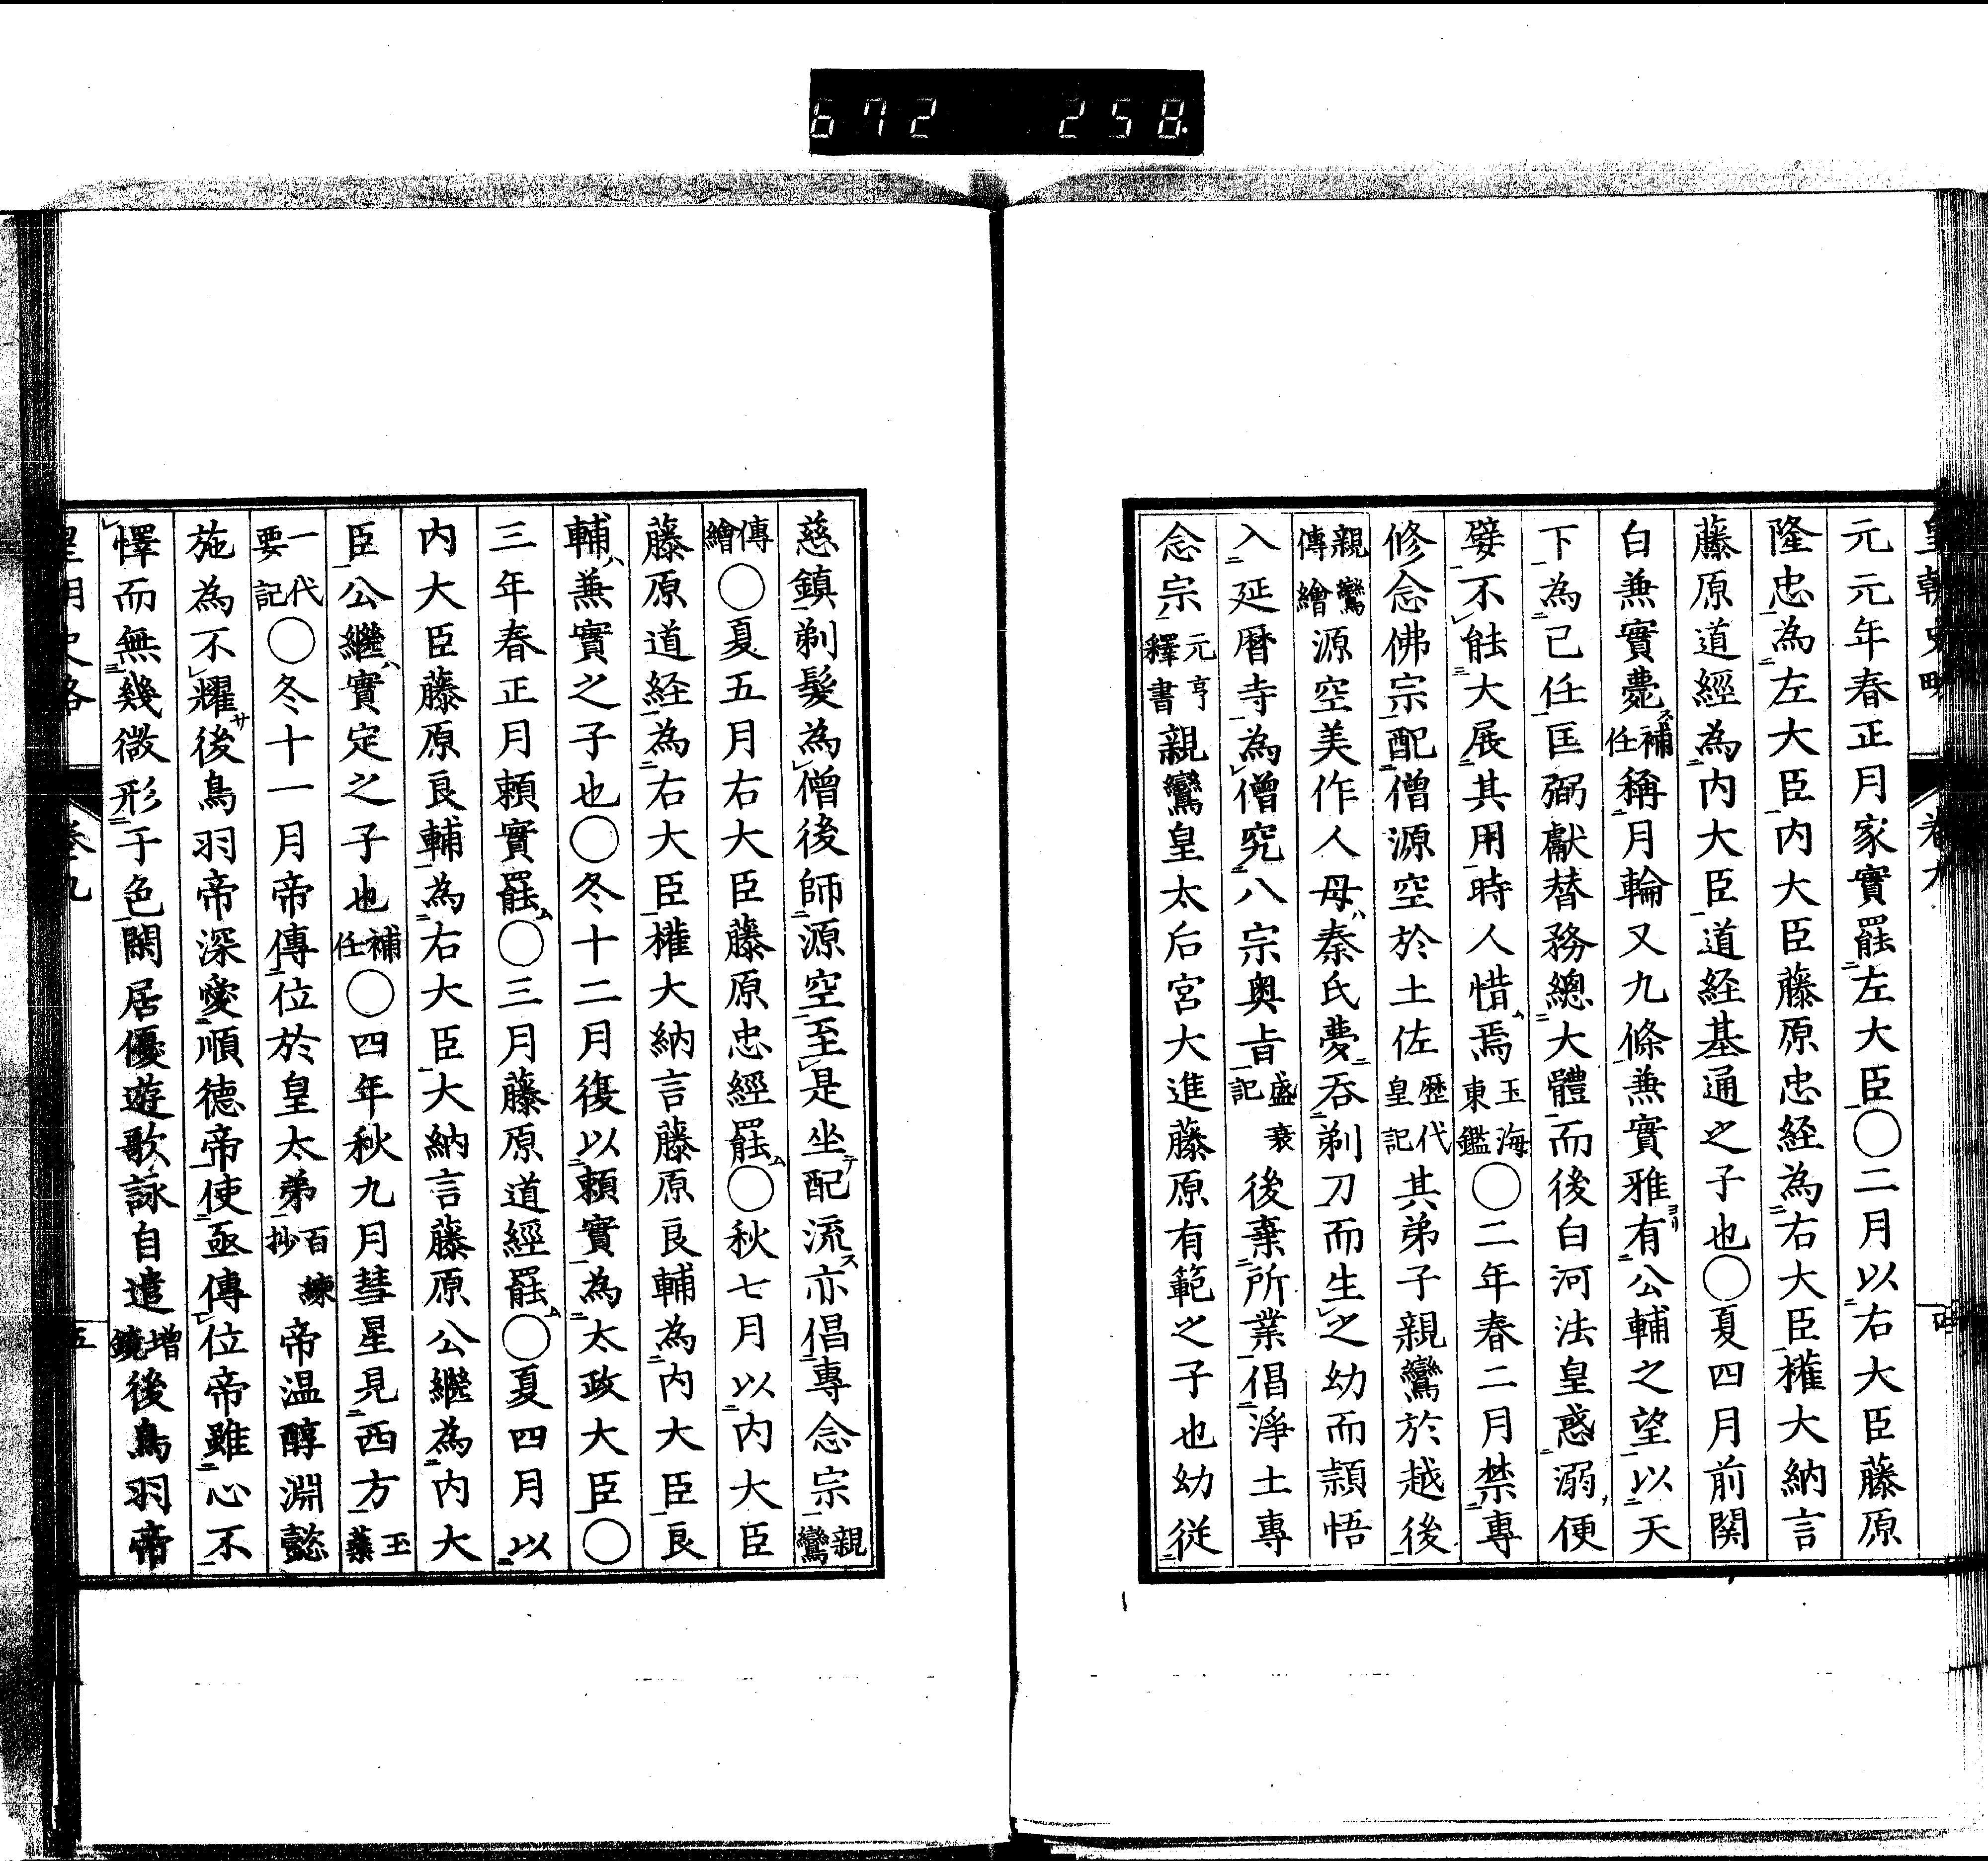 672 258
皇朝史略 卷九 四
元元年春正月家實罷左大臣〇二月以右大臣藤原
隆忠為左大臣内大臣藤原忠経為右大臣權大納言
藤原道經為内大臣道経基通之子也〇夏四月前関
白兼實薨補任稱月輪又九條兼實雅有公輔之望以天
下為已任匡弼獻替務總大體而後白河法皇惑溺便
嬖不能大展其用時人惜焉玉海東鑑〇二年春二月禁專
修念佛宗配僧源空於土佐歴代皇記其弟子親鸞於越後
親鸞傳繪源空美作人母秦氏夢吞剃刀而生之幼而頴悟
入延暦寺為僧究八宗奥旨盛衰記後棄所業倡淨土專
念宗元亨釋書親鸞皇太后宮大進藤原有範之子也幼從
慈鎮剃髮為僧後師源空至是坐配流亦倡專念宗親鸞
傳繪〇夏五月右大臣藤原忠經罷〇秋七月以内大臣
藤原道経為右大臣權大納言藤原良輔為内大臣良
輔兼實之子也〇冬十二月復以頼實為太政大臣〇
三年春正月頼實罷〇三月藤原道經罷〇夏四月以
内大臣藤原良輔為右大臣大納言藤原公継為内大
臣公繼實定之子也補任〇四年秋九月彗星見西方玉蘂
一代要記〇冬十一月帝傳位於皇太弟百練抄帝温醇淵懿
施為不耀後鳥羽帝深愛順德帝使亟傳位帝雖心不
懌而無幾微形于色閑居優遊歌詠自遣增鏡後鳥羽帝
皇朝史略 卷九 五